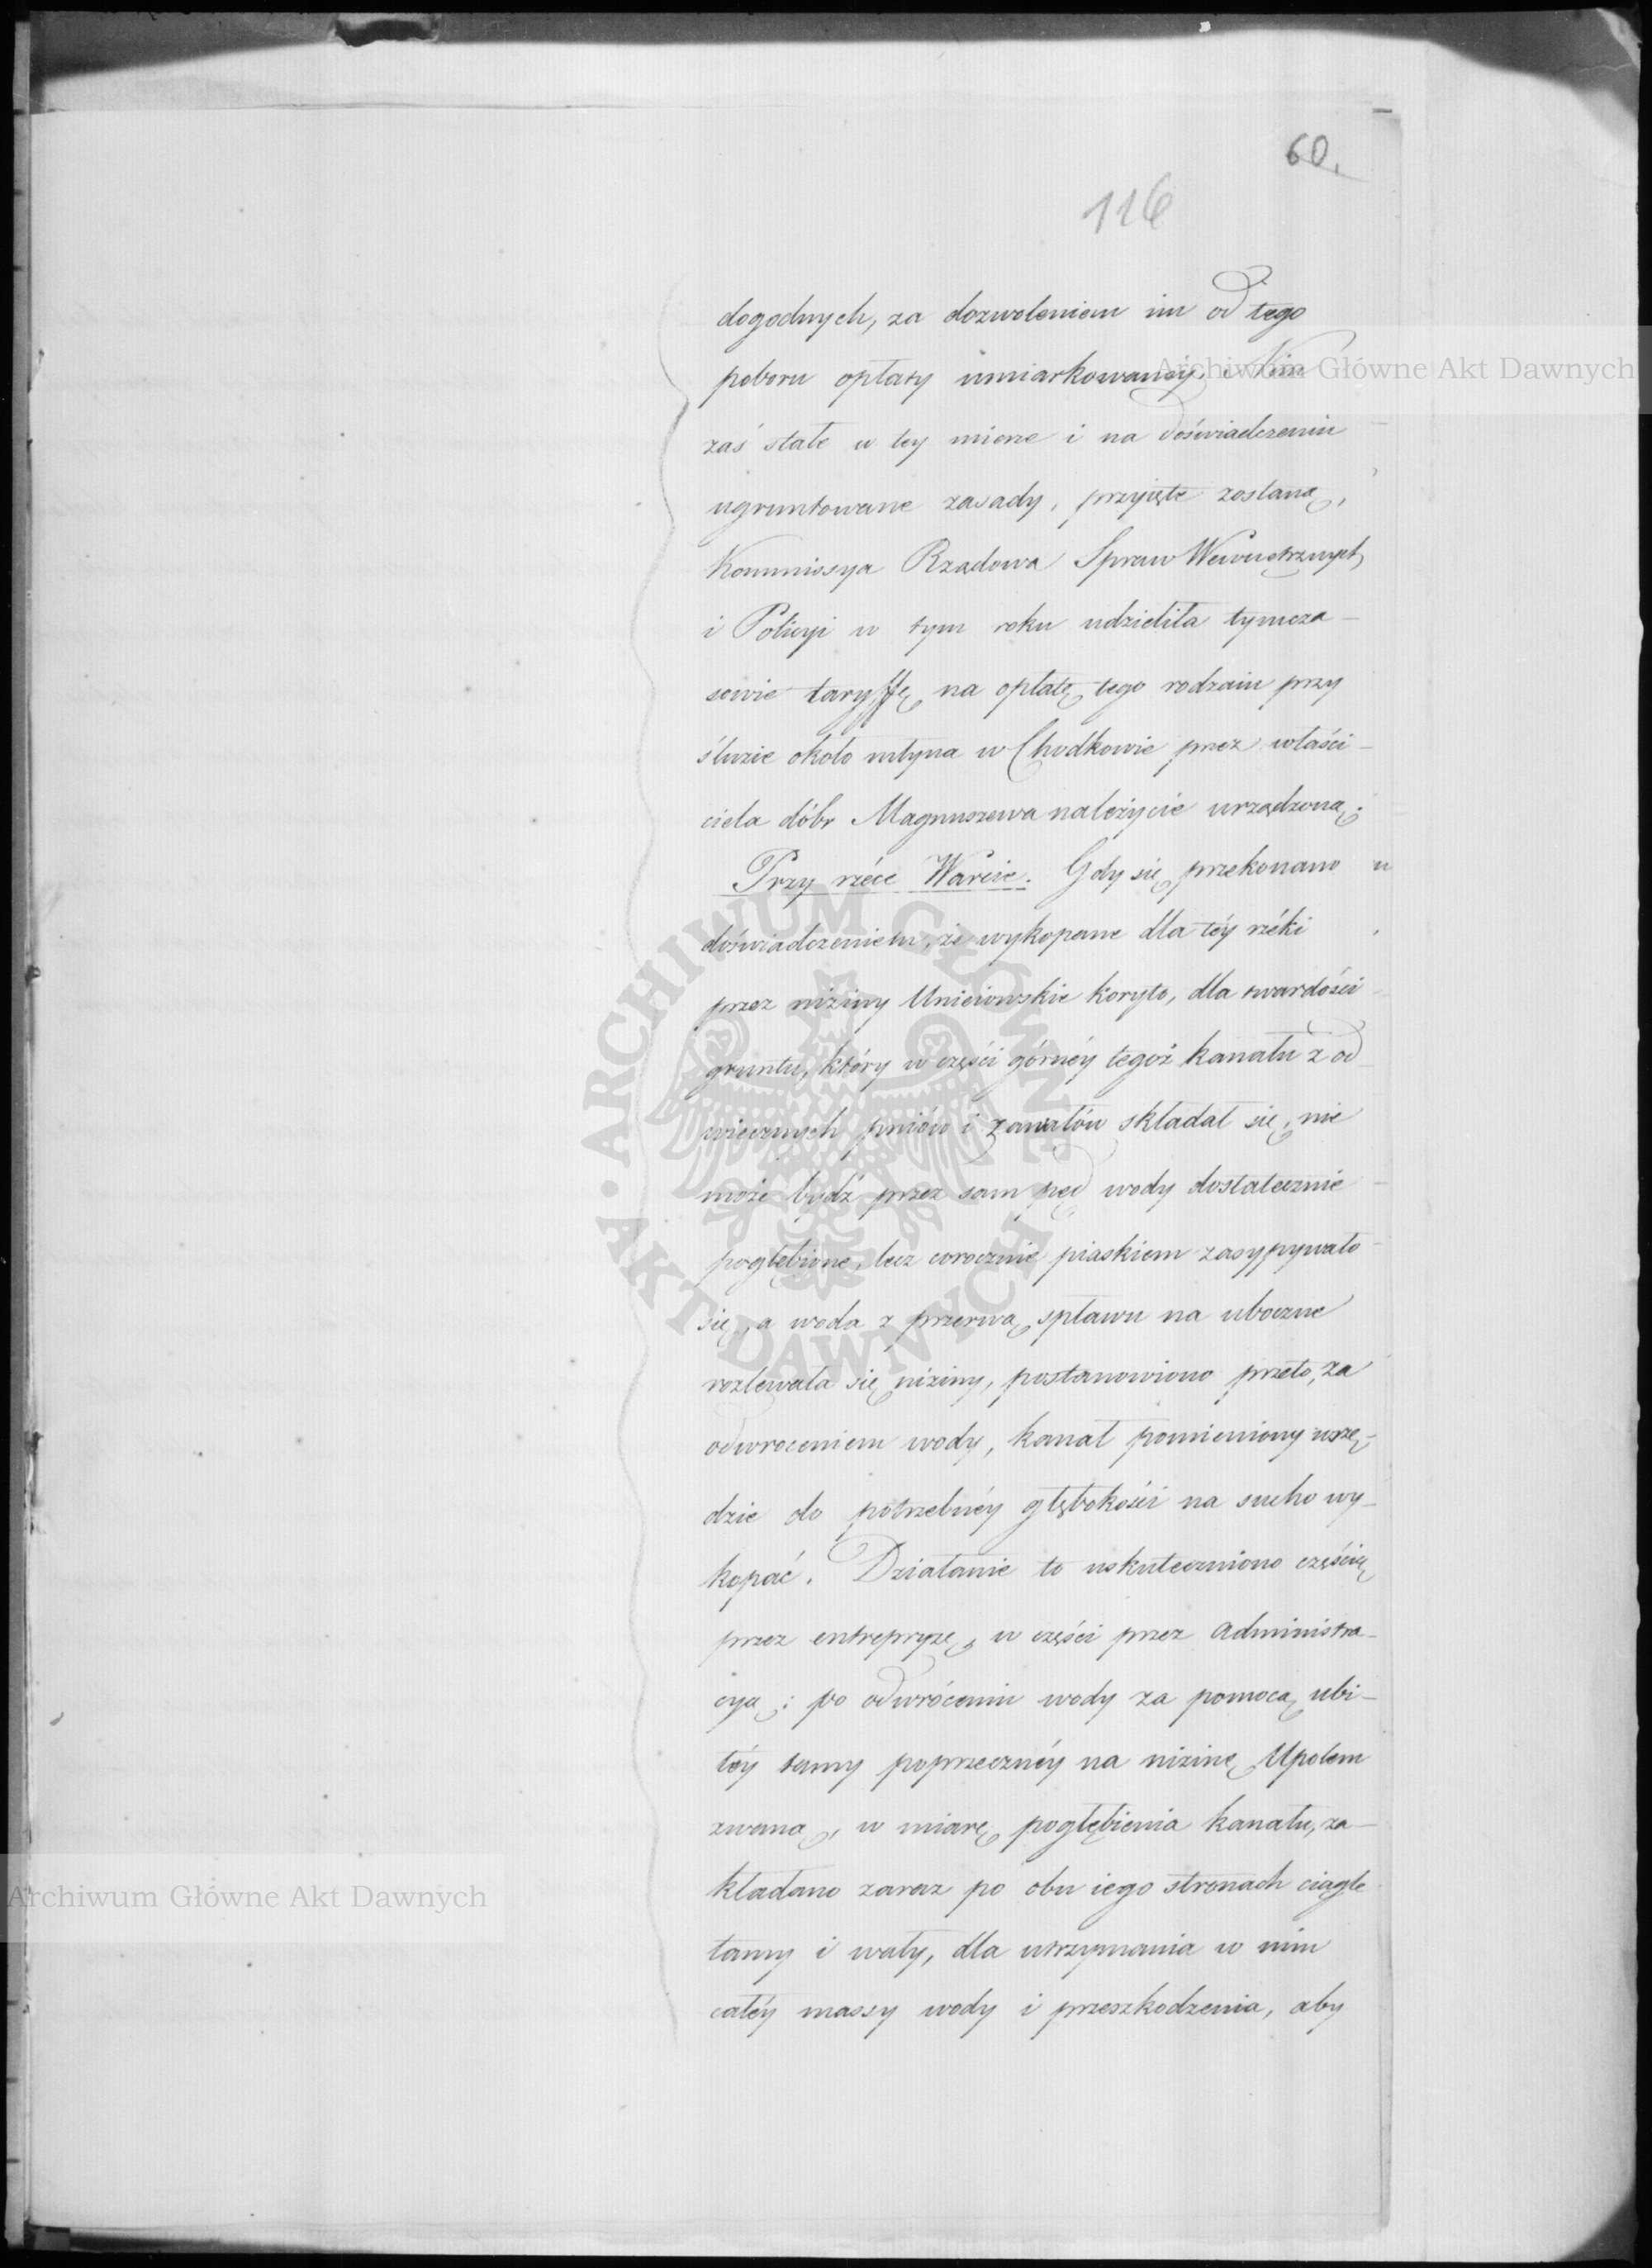 60.
116
dogodnych, za dozwoleniem im od tego
poboru opłaty umiarkowanéy. Nim
zaś stałe w tey mierze i na doświadczeniu
ugruntowane zasady, przyięte zostaną,
Kommissya Rządowa Spraw Wewnętrznych
i Policyi w tym roku udzieliła tymcza-
sowie taryffę na opłatę tego rodzaiu przy
śluzie około młyna w Chodkowie przez właści-
ciela dóbr Magnuszewa należycie urządzoną.
Przy rzéce Warcie. Gdy się przekonano
doświadczeniem, że wykopane dla téy rzéki
przez niziny Unieiowskie koryto, dla twardości
gruntu, który w części górnéy tegoż kanału z od
wiecznych pniów i zawałów składał się, nie
może bydź przez sam pęd wody dostatecznie
pogłębione, lecz corocznie piaskiem zasypywało
się, a woda z przerwą spławu na uboczne
rozlewała się niziny, postanowiono przeto, za
odwroceniem wody, kanał pomieniony wszę-
dzie do potrzebnéy głębokości na sucho wy-
kopać. Działanie to uskuteczniono częścią
przez entrepryzę, w części przez administra-
cyą; po odwróceniu wody za pomocą ubi-
téy tamy poprzecznéy na nizinę Upolem
zwaną, w miarę pogłębienia kanału, za-
kładano zaraz po obu iego stronach ciągłe
tamy i wały, dla utrzymania w nim
całéy massy wody i przeszkodzenia, aby
Archiwum Główne Akt Dawnych
Archiwum Główne Akt Dawnych
ARCHIWUM GŁÓWNE AKT DAWNYCH